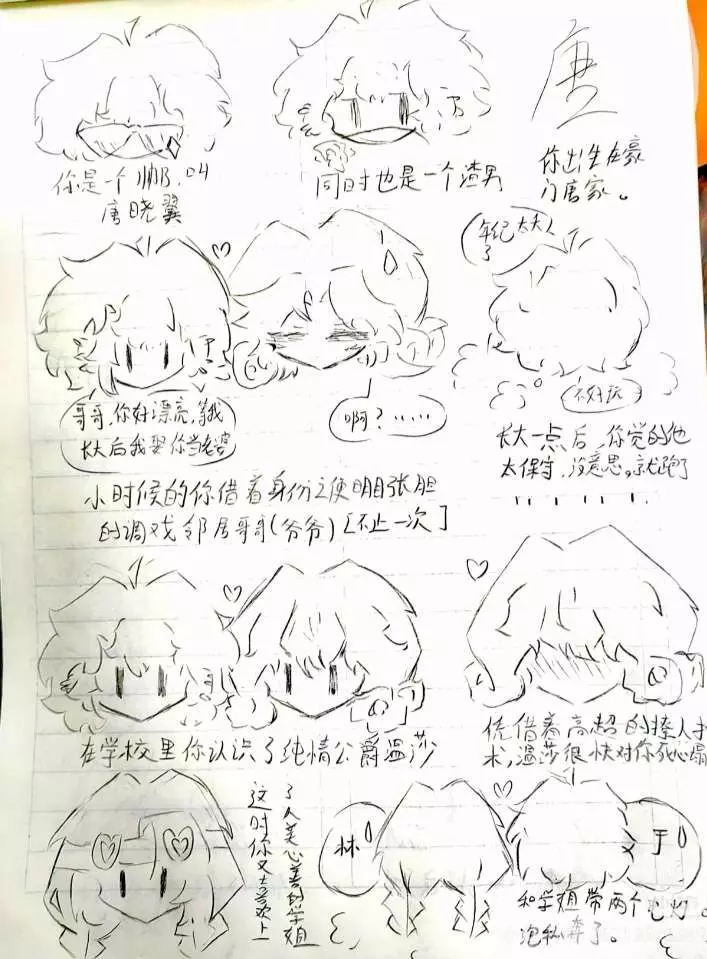 你是个帅B.04
唐晓翼
同时也是一个渣男
唐
你出生在豪
门唐家。
哥哥,你好漂亮,等我
长大后我娶你当老婆
啊?······
年纪太大
了
不好玩
小时候的你借着身份之便明目张胆
的调戏邻居哥哥(爷爷)[不止一次]
长大一点后,你觉的他
太保守,没意思。就跑了
在学校里你认识了纯情公爵温莎
凭借着高超的撩人手
术,温莎很快对你死心塌
这时你又喜欢上
了人美心善的学姐
林
于
和学姐带两个电灯
泡私奔了。